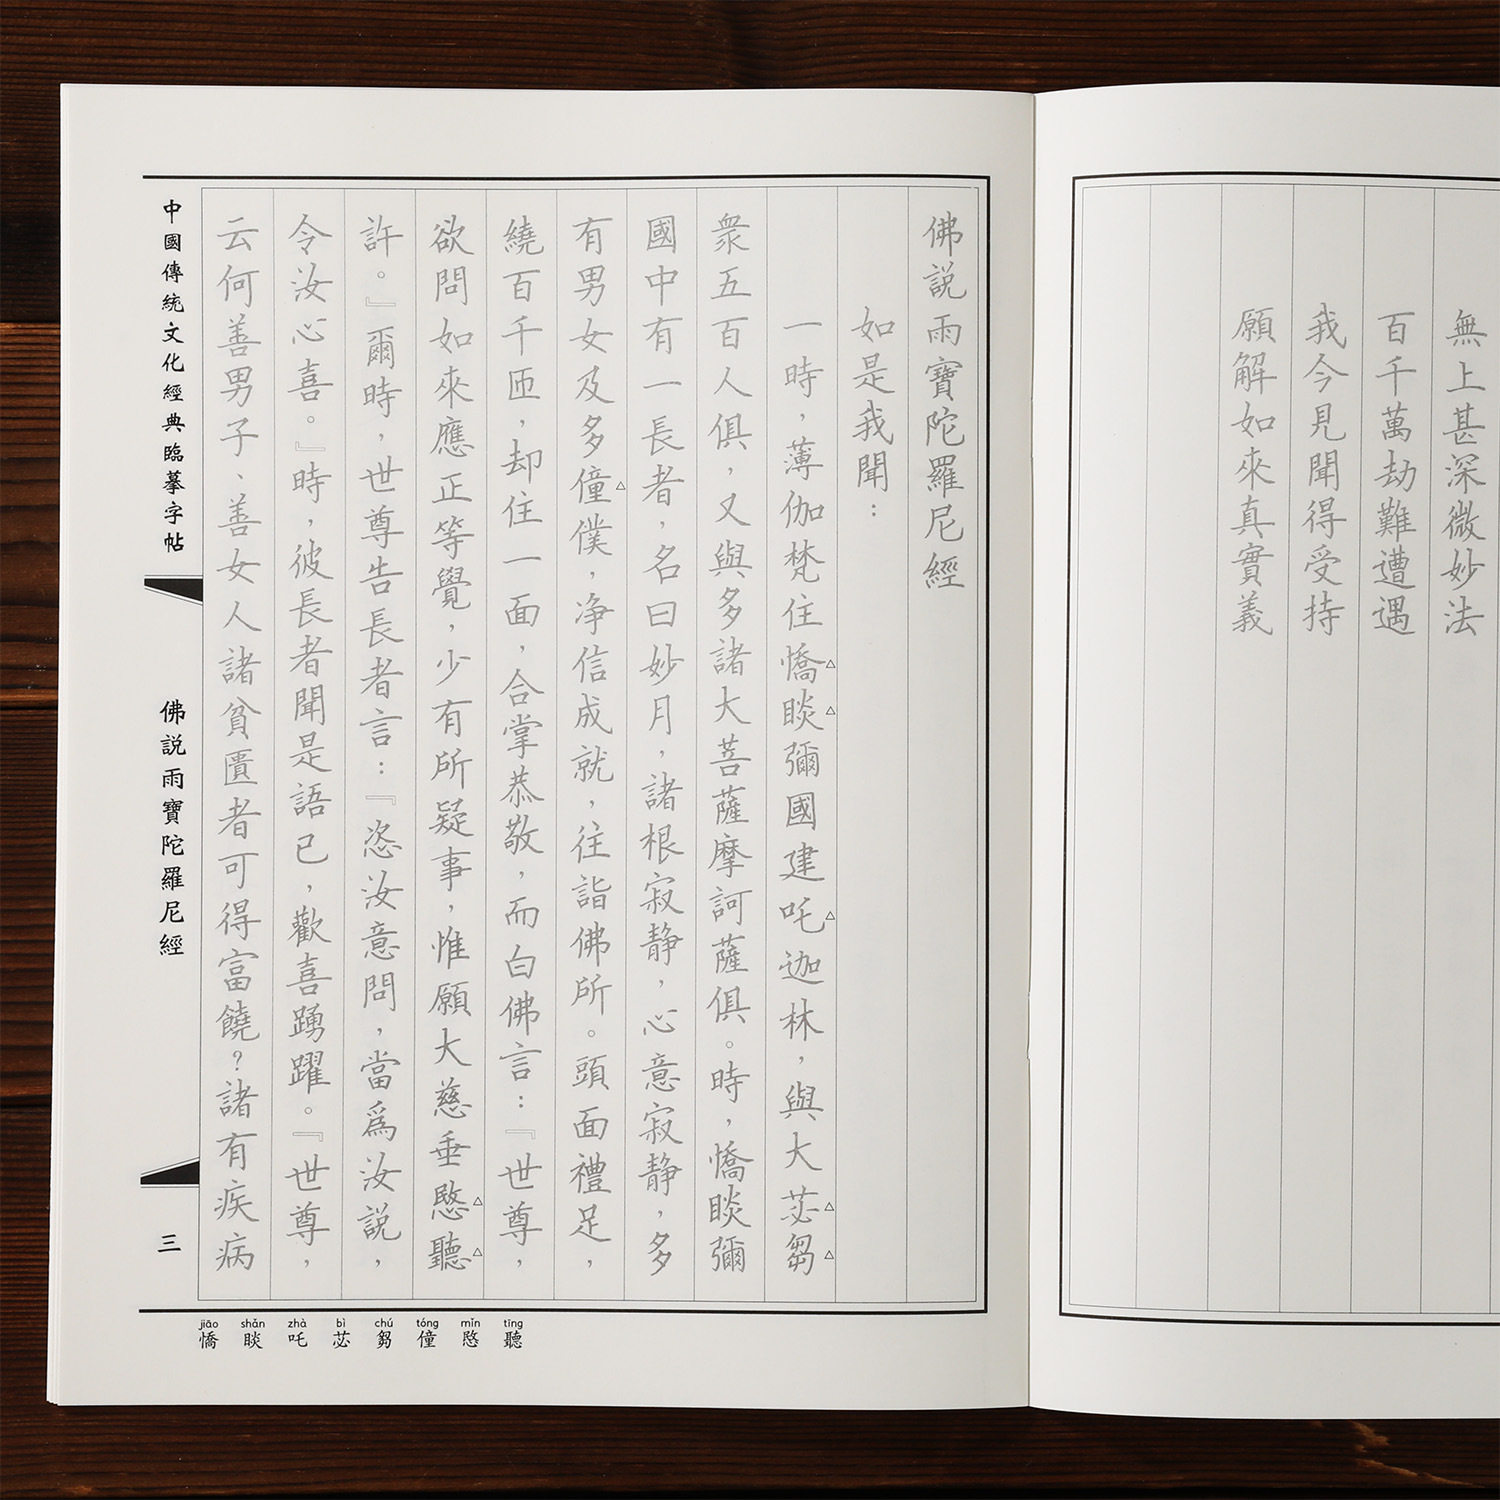 無上甚深微妙法
百千萬劫難遭遇
我今見聞得受持
願解如來真實義
佛説雨寶陀羅尼經
如是我聞：
一時，薄伽梵住憍睒彌國建吒迦林，與大苾芻
衆五百人俱，又與多諸大菩薩摩訶薩俱。時，憍睒彌
國中有一長者，名曰妙月，諸根寂静，心意寂静，多
有男女及多僮僕，净信成就，往詣佛所。頭面禮足，
繞百千匝，却住一面，合掌恭敬，而白佛言：『世尊，
欲問如來應正等覺，少有所疑事，惟願大慈垂愍聽
許。』爾時，世尊告長者言：『恣汝意問，當爲汝説，
令汝心喜。』時，彼長者聞是語已，歡喜踴躍。『世尊，
云何善男子、善女人諸貧匱者可得富饒？諸有疾病
中國傳統文化經典臨摹字帖
佛説雨寶陀羅尼經
三
jiāo shǎn zhà bì chú tóng mǐn tīng
憍 睒 吒 苾 芻 僮 愍 聽